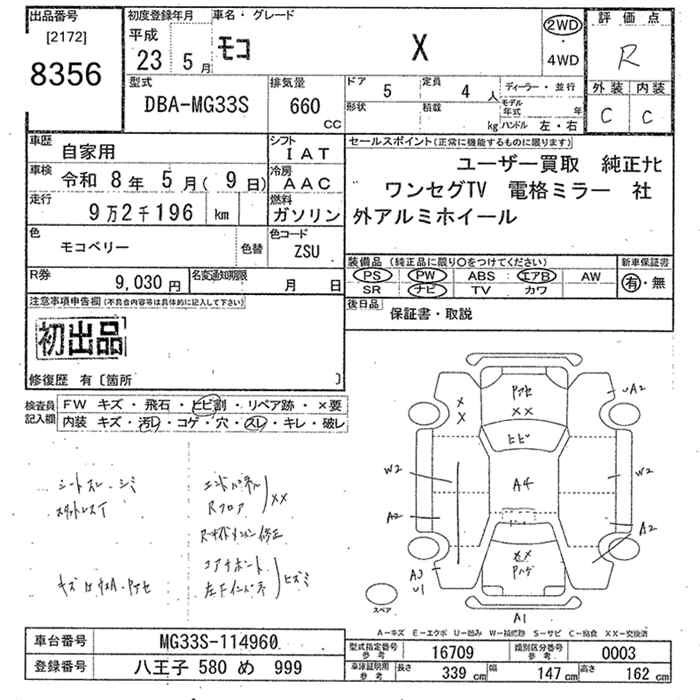 出品番号
[2172]
8356
初度登録年月
平成
23 5 月
車名・グレード
モコ X
2WD
・
4WD
評価点
R
外装 内装
C C
型式
DBA-MG33S
排気量
660
cc
ドア
5
定員
4 人
形状
積載
kg
ディーラー・並行
モデル
年式 年
ハンドル 左・右
車歴
自家用
シフト
IAT
セールスポイント(正常に機能するものに限ります)
ユーザー買取 純正ナビ
ワンセグTV 電格ミラー 社
外アルミホイール
車検
令和 8年 5月( 9日)
冷房
AAC
走行
9万2千196 km
燃料
ガソリン
色
モコベリー
色替
色コード
ZSU
装備品(純正品に限り○をつけてください)
PS PW ABS エアB AW
SR ナビ TV カワ
新車保証書
有・無
R券
9,030 円
名変通知期限
月 日
後日品
保証書・取説
注意事項申告欄(不具合内容等は具体的に記入して下さい)
初出品
修復歴 有〔箇所 〕
検査員
記入欄
FW キズ・飛石・ヒビ割・リペア跡・×要
内装 キズ・汚レ・コゲ・穴・スレ・キレ・破レ
シートスレ・シミ
エンドパネル
Rフロア
××
修正
コアサポート
ヒズミ
×
×
アセ
××
ヒビ
UA2
W2
W2
A4
A2
A2
××
A1
スペア
A-キズ E-エクボ U-凹み W-補修跡 S-サビ C-腐食 XX-交換済
車台番号
MG33S-114960
登録番号
八王子 580 め 999
型式指定番号
参考
16709
類別区分番号
参考
0003
車庫証明用
参考
長さ
339 cm
幅
147 cm
高さ
162 cm